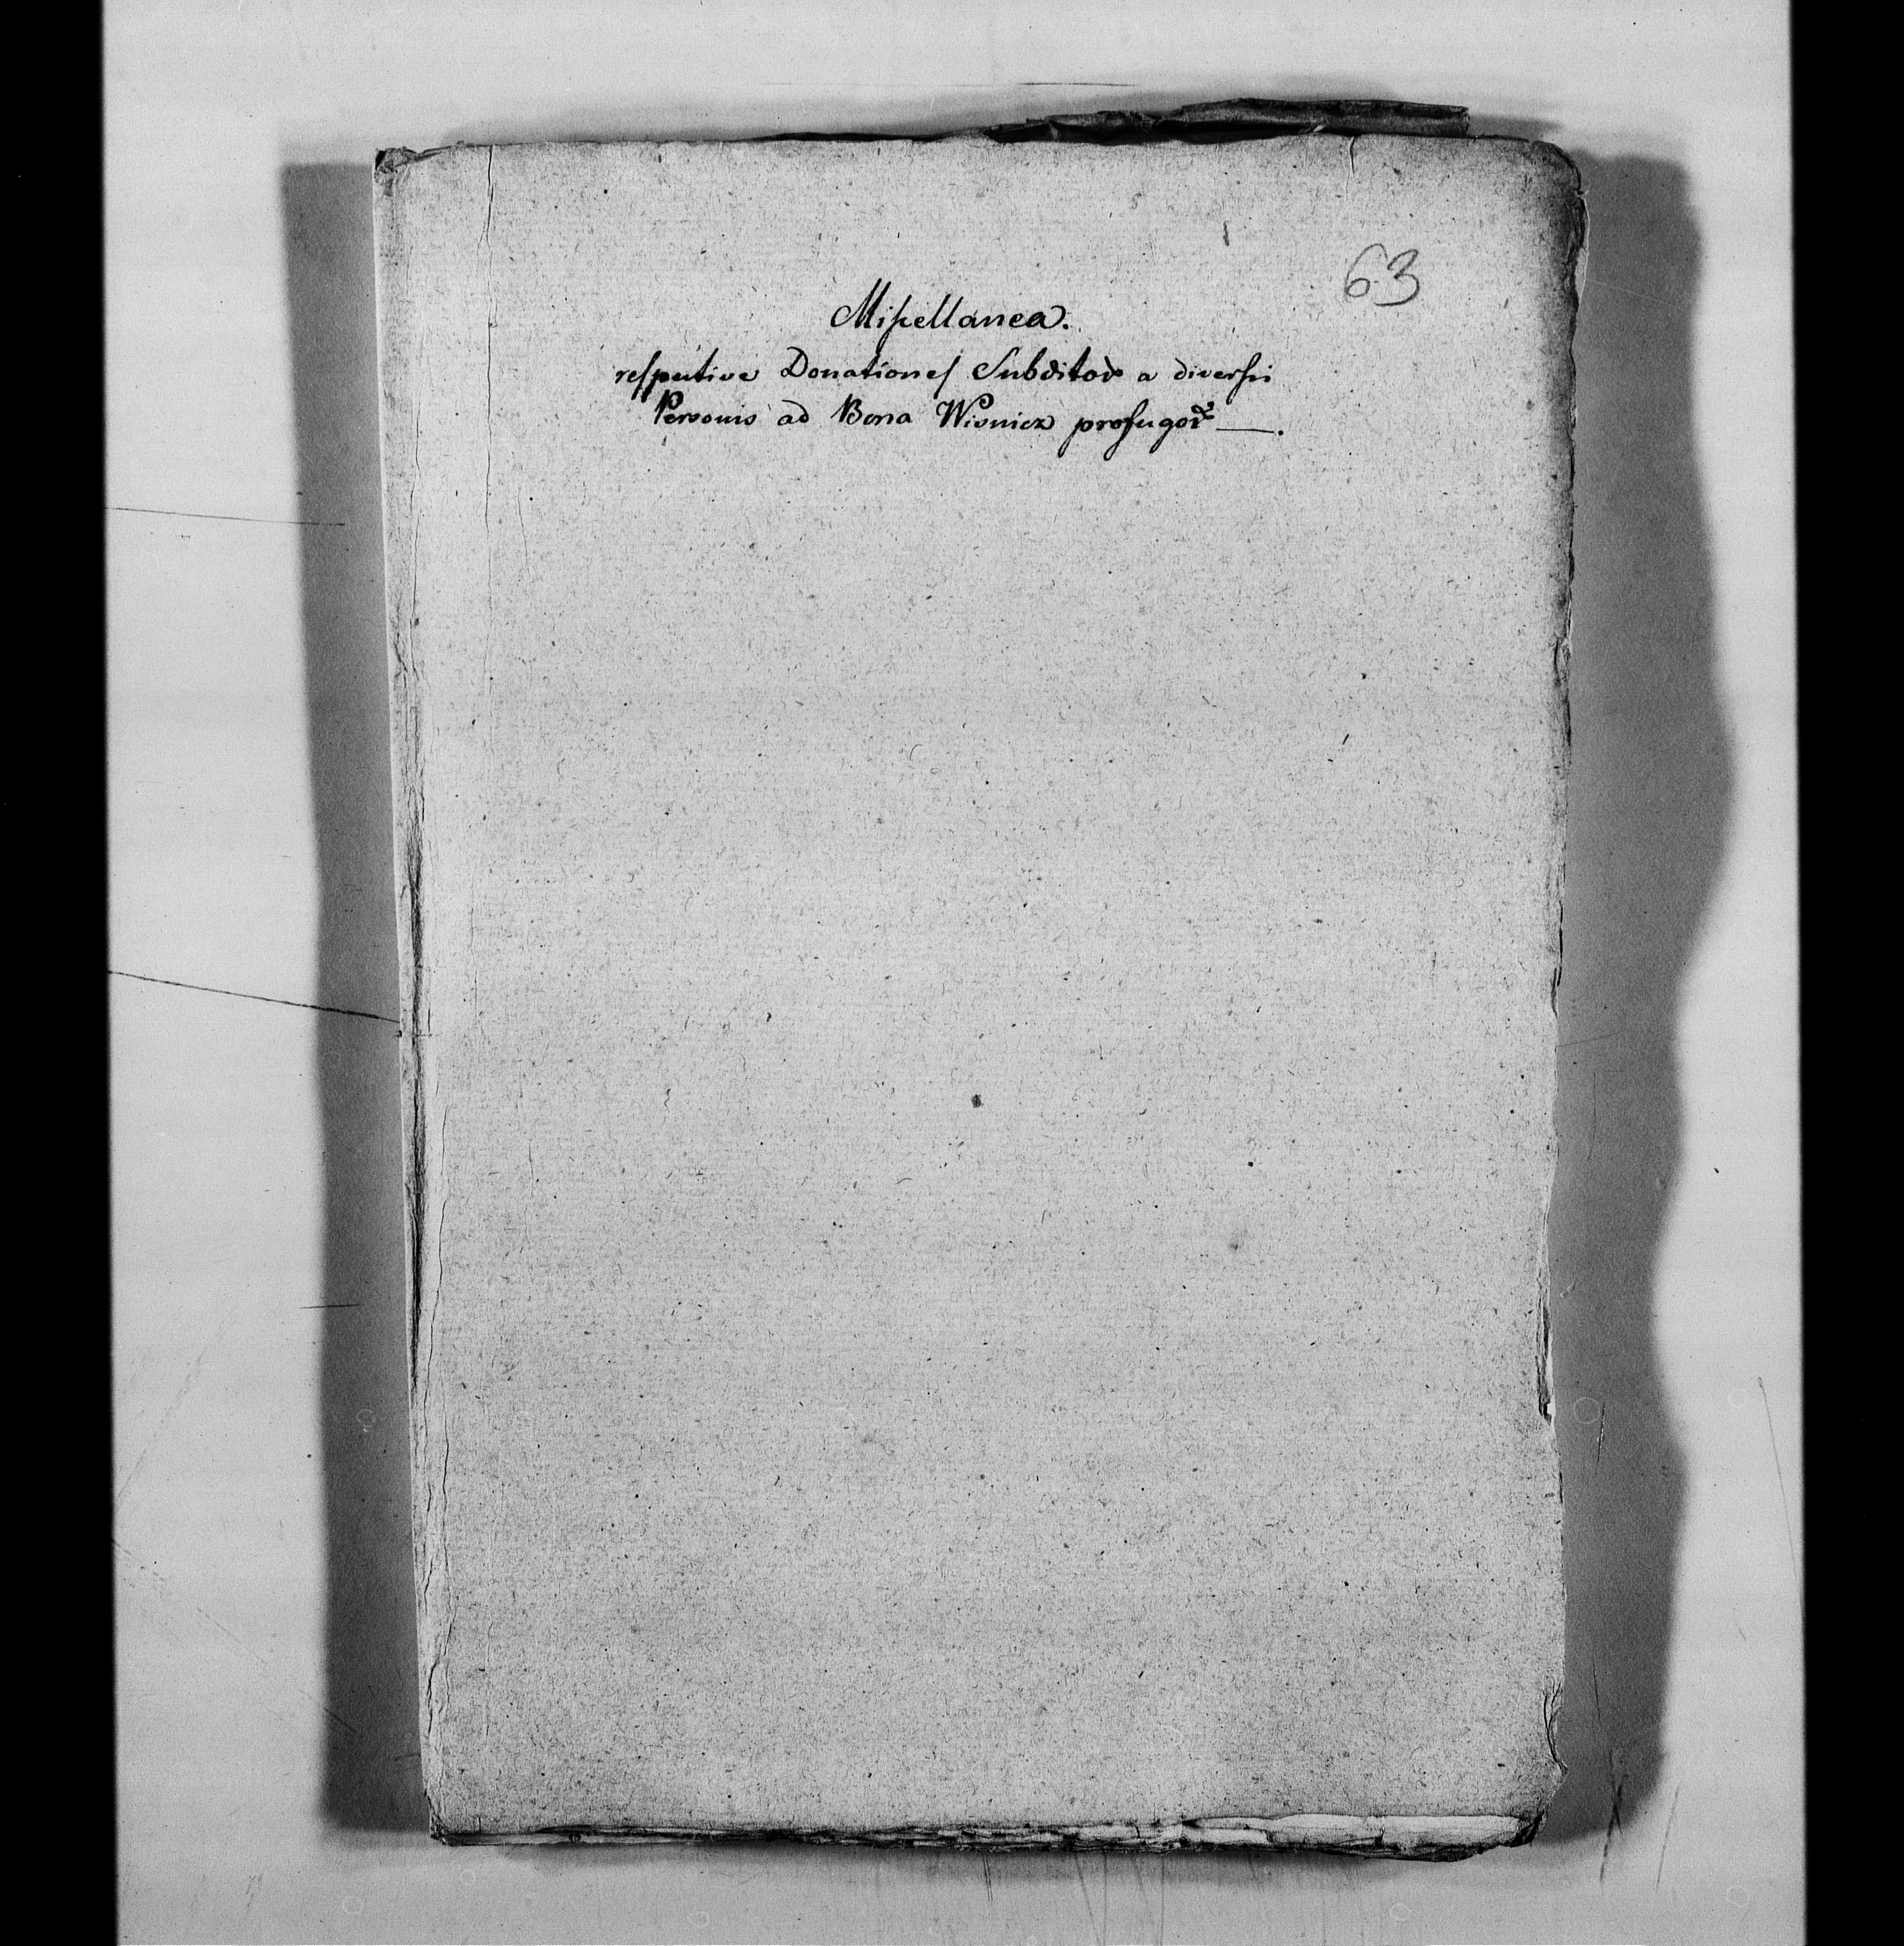 63
Miscellanea.
respective Donationes Subditor a diversis
Personis ad Bona Wisnicz profugor —.